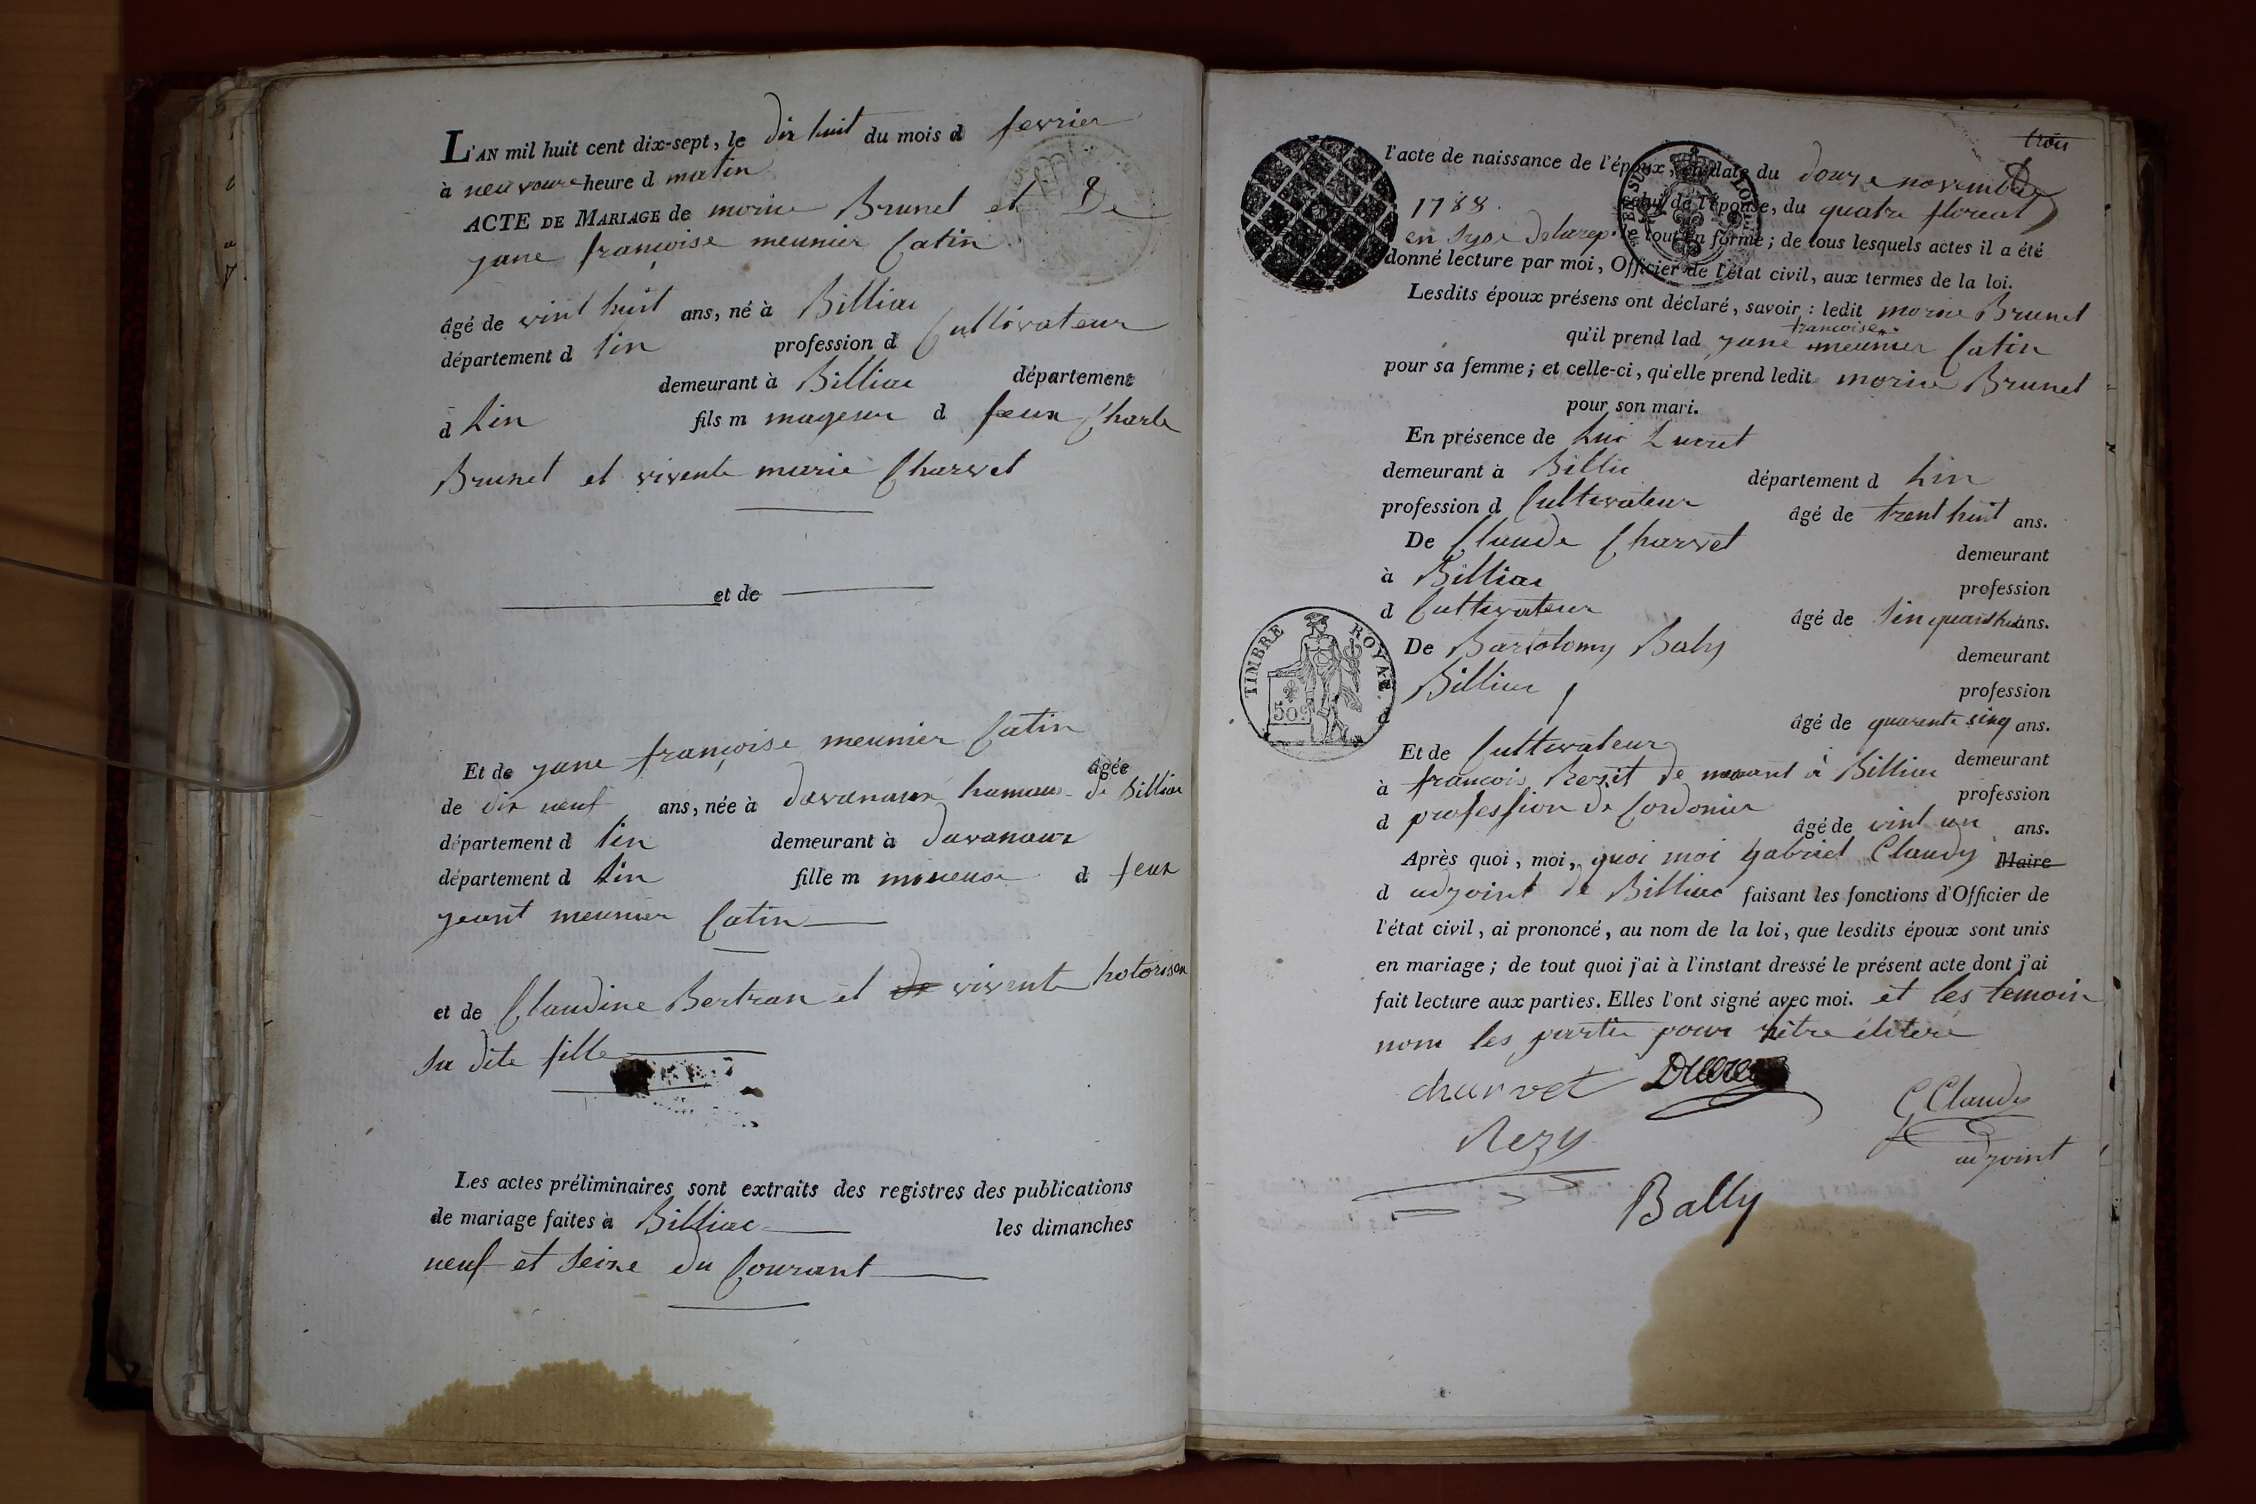 L'AN mil huit cent dix-sept, le dix huit du mois d fevrier
à neuvoure heure d matin
ACTE DE MARIAGE de morice Brunet et De
jane françoise meunier Catin
âgé de vint huit ans, né à Billiac
département d lin profession d Cultivateur
demeurant à Billiac département
d Lin fils m mageur d feux Charle
Brunet et vivente marie Charvet
et de
Et de jane françoise meunier Catin âgée
de dix neuf ans, née à davanaux hameau de Billiac
département d lin demeurant à davanaux
département d Lin fille m mineuse d feux
jeant meunier Catin
et de Claudine Bertran et de vivente hotorison
sa dite fille
Les actes préliminaires sont extraits des registres des publications
de mariage faites à Billiac les dimanches
neuf et seize du Courant
trois
l'acte de naissance de l'époux, en date du douze novembre
1788. celui de l'épouse, du quatre floreal
en le tout en forme; de tous lesquels actes il a été
donné lecture par moi, Officier de l'état civil, aux termes de la loi.
Lesdits époux présens ont déclaré, savoir : ledit morice Brunet
francoise
qu'il prend lad jane meunier Catin
pour sa femme; et celle-ci, qu'elle prend ledit morice Brunet
pour son mari.
En présence de Lui
demeurant à Billic département d Lin
profession d Cultivateur âgé de trent huit ans.
De Claude Charvet demeurant
à Billiac profession
d Cultivateur âgé de ans.
De Bartolomy Baly demeurant
Billiac profession
d âgé de quarente sinq ans.
Et de Cultivateur demeurant
à francois Rezit de meurant à Billiac profession
d profession de Cordonier âgé de vint un ans.
Après quoi, moi, quoi moi gabriel Claudy Maire
d adjoint de Billiac faisant les fonctions d'Officier de
l'état civil, ai prononcé, au nom de la loi, que lesdits époux sont unis
en mariage; de tout quoi j'ai à l'instant dressé le présent acte dont j'ai
fait lecture aux parties. Elles l'ont signé avec moi. et les temoin
nom les partie pour nêtre élitéré
charvet
G Claudy
adjoint
Rezy
Bally
TIMBRE ROYAL
50c